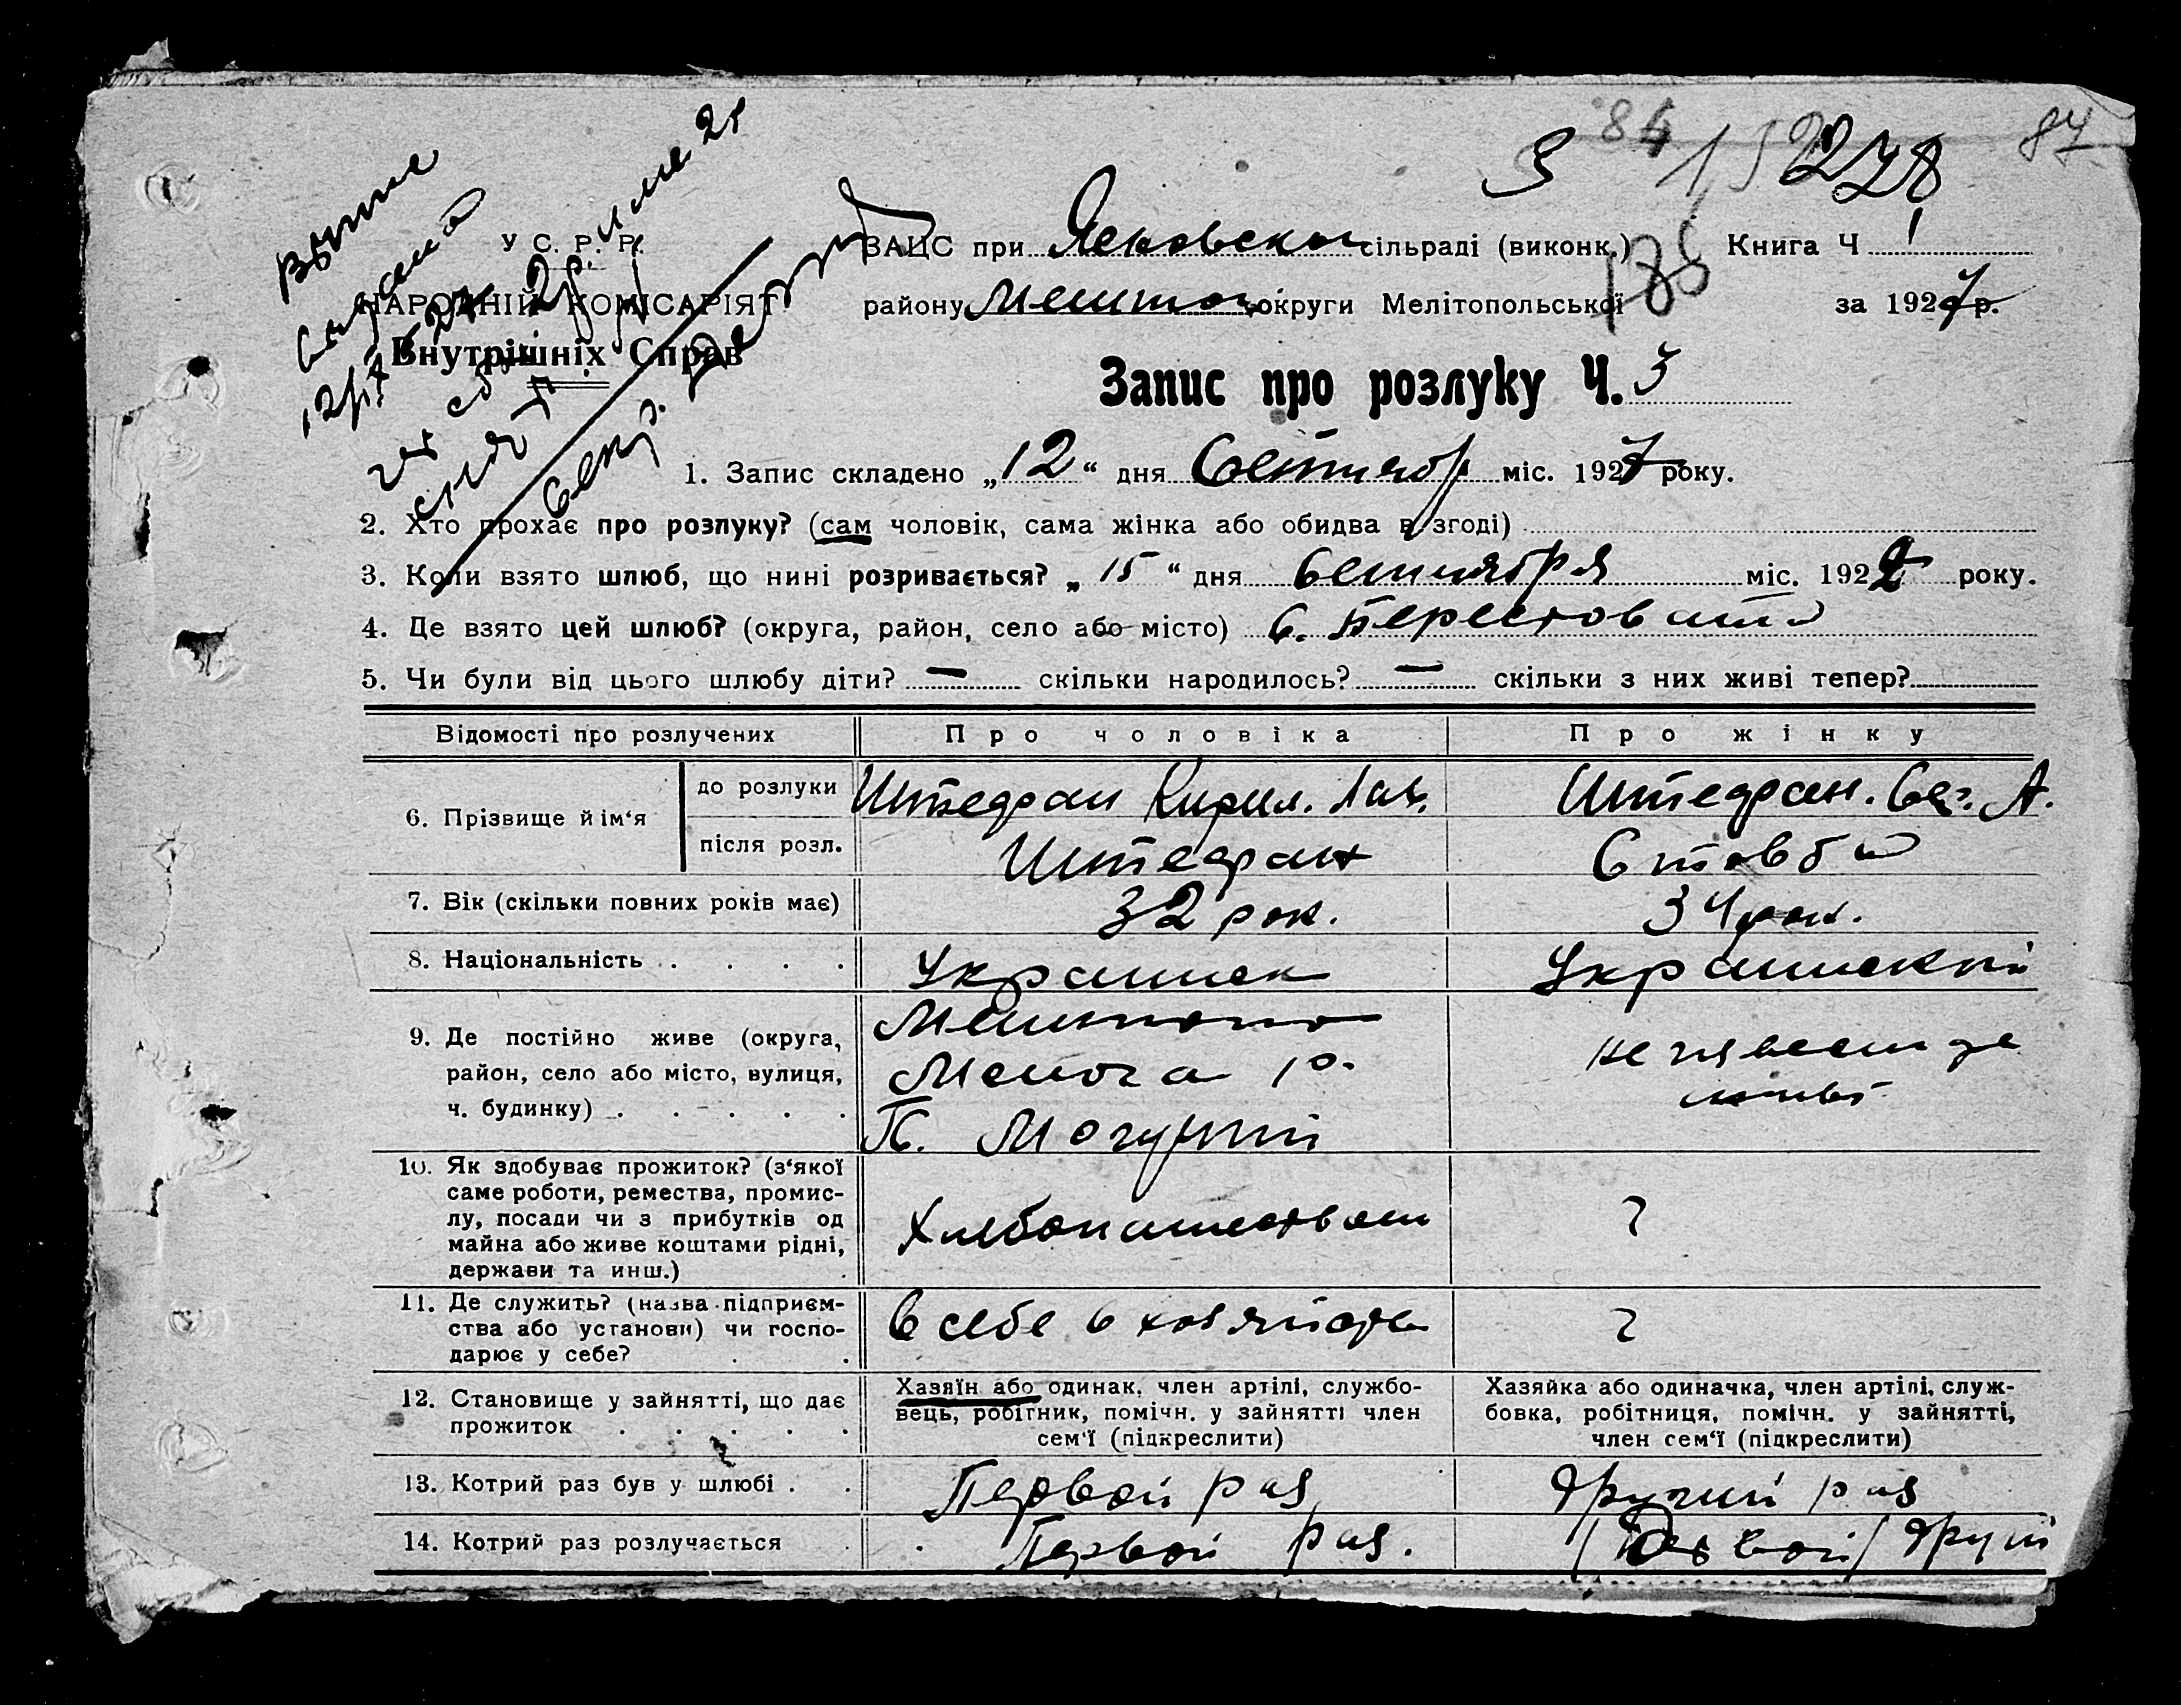 84
3
152
228
87
Выпис
У С. Р. Р.
НАРОДНІЙ КОМІСАРІЯТ
Внутрішніх Справ
ЗАЦС при сільраді (виконк.)
Книга Ч 1
району округи Мелітопольської
за 1927 р.
Запис про розлуку Ч. 3
1. Запис складено „12“ дня Сентябр міс. 1927 року.
2. Хто прохає про розлуку? (сам чоловік, сама жінка або обидва в згоді)
3. Коли взято шлюб, що нині розривається? „15“ дня Сентиября міс. 1922 року.
4. Де взято цей шлюб? (округа, район, село або місто) С.
5. Чи були від цього шлюбу діти? — скільки народилось? — скільки з них живі тепер?
Відомості про розлучених
Про чоловіка
Про жінку
6. Прізвище й ім‘я
до розлуки
Штедран Кирил. Лав.
Штедран. А.
після розл.
Штедран
Стовба
7. Вік (скільки повних років має)
32 рок.
34 рок.
8. Національність . . . .
Украинск
Украинский
9. Де постійно живе (округа,
район, село або місто, вулиця,
ч. будинку) . . . . .
П. Могучий
10. Як здобуває прожиток? (з‘якої
саме роботи, ремества, промис-
лу, посади чи з прибутків од
майна або живе коштами рідні,
держави та инш.)
Хлебопашеством
?
11. Де служить? (назва підприєм-
ства або установи) чи госпо-
дарює у себе?
В себе в хозяйстве
?
12. Становище у зайнятті, що дає
прожиток . . . . .
Хазяїн або одинак, член артілі, службо-
вець, робітник, помічн. у зайнятті член
сем‘ї (підкреслити)
Хазяйка або одиначка, член артілі, служ-
бовка, робітниця, помічн. у зайнятті,
член сем‘ї (підкреслити)
13. Котрий раз був у шлюбі . .
Первой раз
другий раз
14. Котрий раз розлучається
Первой раз.